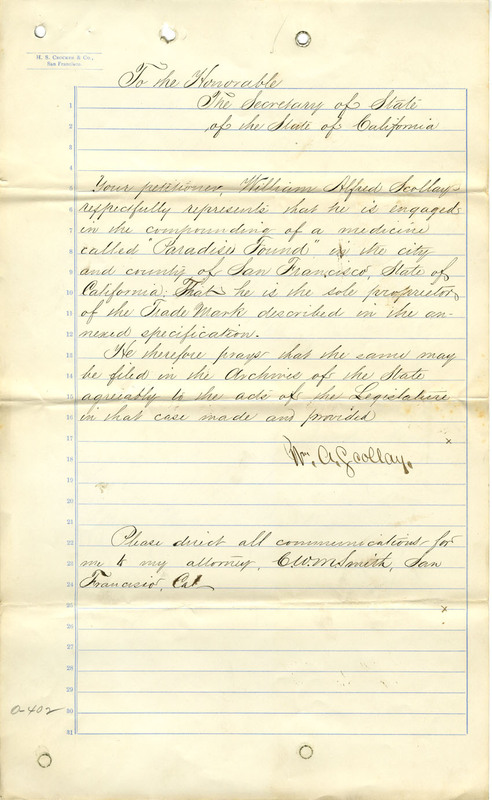 H. S. Crocker & Co.,
San Francisco.
To the Honorable
The Secretary of State
of the State of California
1
2
3
4
5 Your petitioner, William Alfred Scollay
6 respectfully represents that he is engaged
7 in the compounding of a medicine
8 called "Paradise Found" in the city
9 and county of San Francisco, State of
10 California; That he is the sole proprietor
11 of the Trade Mark described in the an-
12 nexed specification.
13 He therefore prays that the same may
14 be filed in the Archives of the State
15 agreeably to the acts of the Legislature
16 in that case made and provided
17 x
18 Wm. A. Scollay.
19
20
21
22 Please direct all communications for
23 me to my attorney, C.W.M. Smith, San
24 Francisco, Cal
25 x
26
27
28
29
30
31
a-402